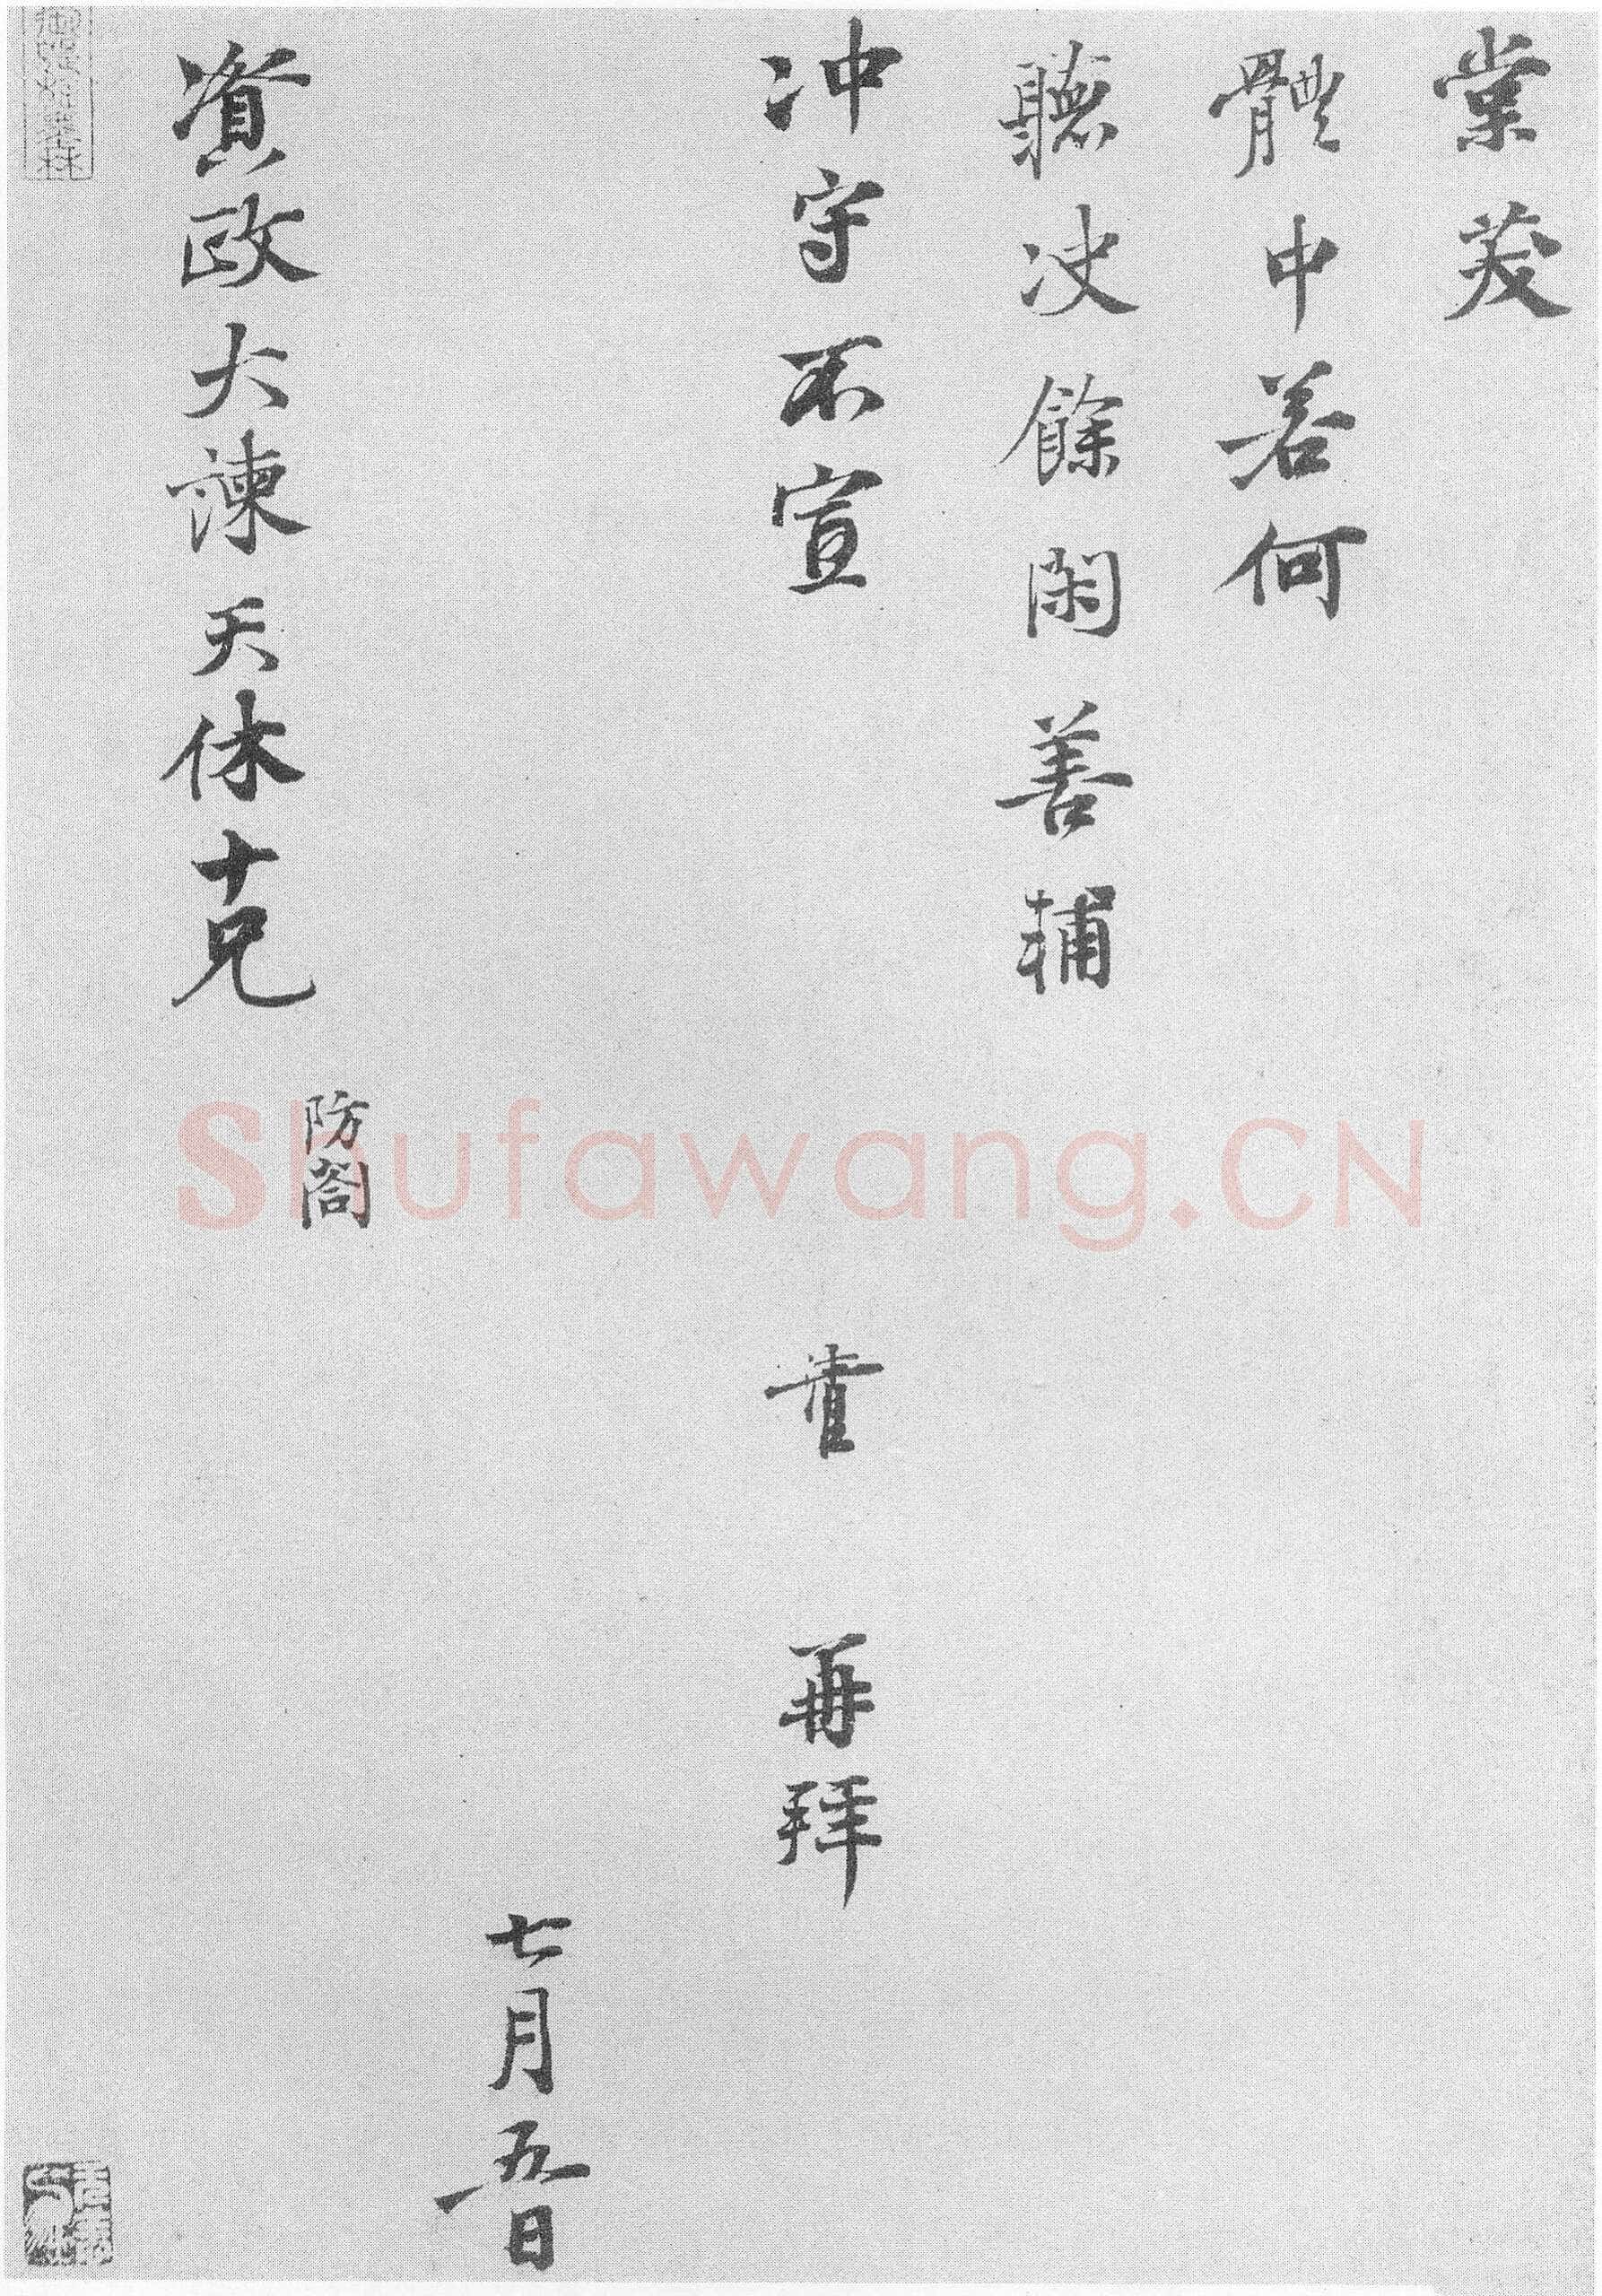 棠茇
體中若何
聽决餘閑善輔
冲守不宣 清臣 再拜
七月五日
防閤
資政大諫天休十兄
Shufawang.CN